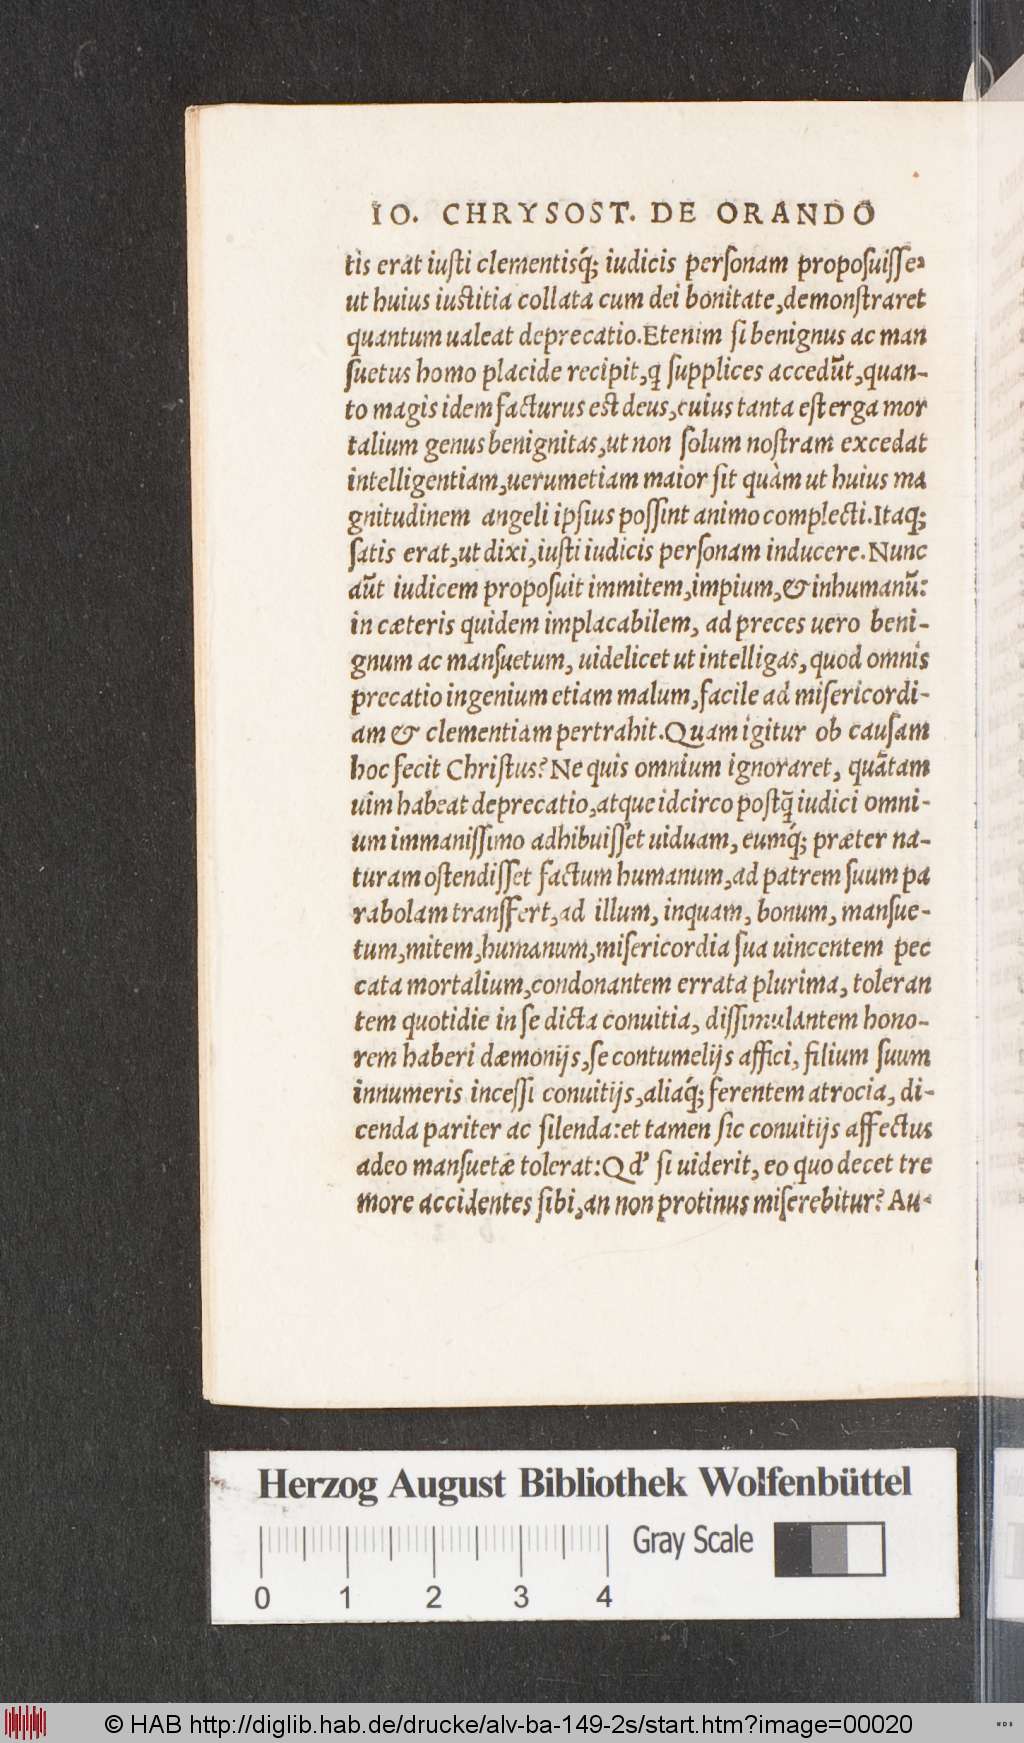 IO. CHRYSOST. DE ORANDO
tis erat iusti clementisq́; iudicis personam proposuisse,
ut huius iustitia collata cum dei bonitate, demonstraret
quantum ualeat deprecatio. Etenim si benignus ac man
suetus homo placide recipit, q supplices accedũt, quan-
to magis idem facturus est deus, cuius tanta est erga mor
talium genus benignitas, ut non solum nostram excedat
intelligentiam, uerumetiam maior sit quàm ut huius ma
gnitudinem angeli ipsius possint animo complecti. Itaq;
satis erat, ut dixi, iusti iudicis personam inducere. Nunc
aũt iudicem proposuit immitem, impium, & inhumanũ:
in cæteris quidem implacabilem, ad preces uero beni-
gnum ac mansuetum, uidelicet ut intelligas, quod omnis
precatio ingenium etiam malum, facile ad misericordi-
am & clementiam pertrahit. Quam igitur ob causam
hoc fecit Christus? Ne quis omnium ignoraret, quãtam
uim habeat deprecatio, atque idcirco postq̃ iudici omni-
um immanissimo adhibuisset uiduam, eumq́; præter na-
turam ostendisset factum humanum, ad patrem suum pa
rabolam transfert, ad illum, inquam, bonum, mansue-
tum, mitem, humanum, misericordia sua uincentem pec
cata mortalium, condonantem errata plurima, toleran
tem quotidie in se dicta conuitia, dissimulantem hono-
rem haberi dæmonijs, se contumelijs affici, filium suum
innumeris incessi conuitijs, aliaq́; ferentem atrocia, di-
cenda pariter ac silenda: et tamen sic conuitijs affectus
adeo mansuetæ tolerat: Qd' si uiderit, eo quo decet tre
more accidentes sibi, an non protinus miserebitur? Au-
Herzog August Bibliothek Wolfenbüttel
Gray Scale
0 1 2 3 4
© HAB http://diglib.hab.de/drucke/alv-ba-149-2s/start.htm?image=00020